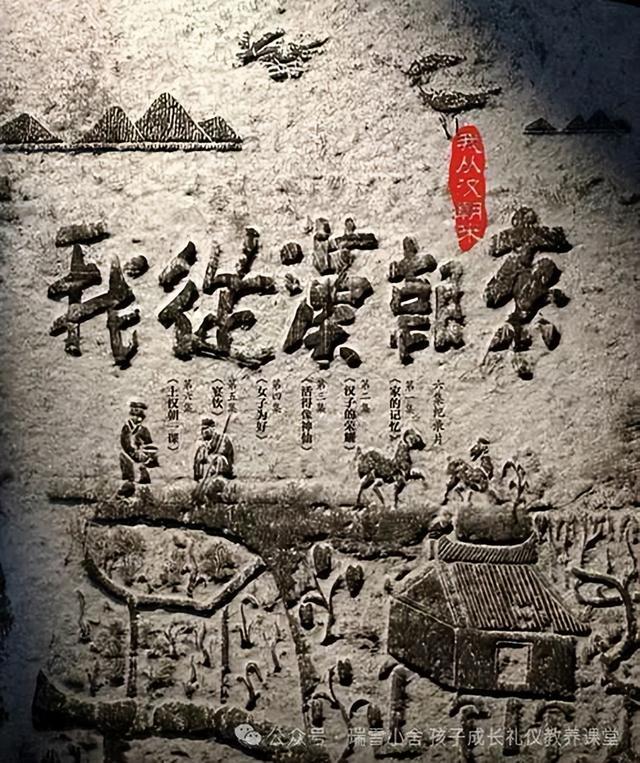 我从汉朝来
我從漢朝來
六集纪录片
第一集
《家的记忆》
第二集
《汉子的荣耀》
第三集
《活得像神仙》
第四集
《女子为好》
第五集
《宴饮》
第六集
《上汉朝一课》
公众号·瑞雪小舍 孩子成长礼仪教养课堂